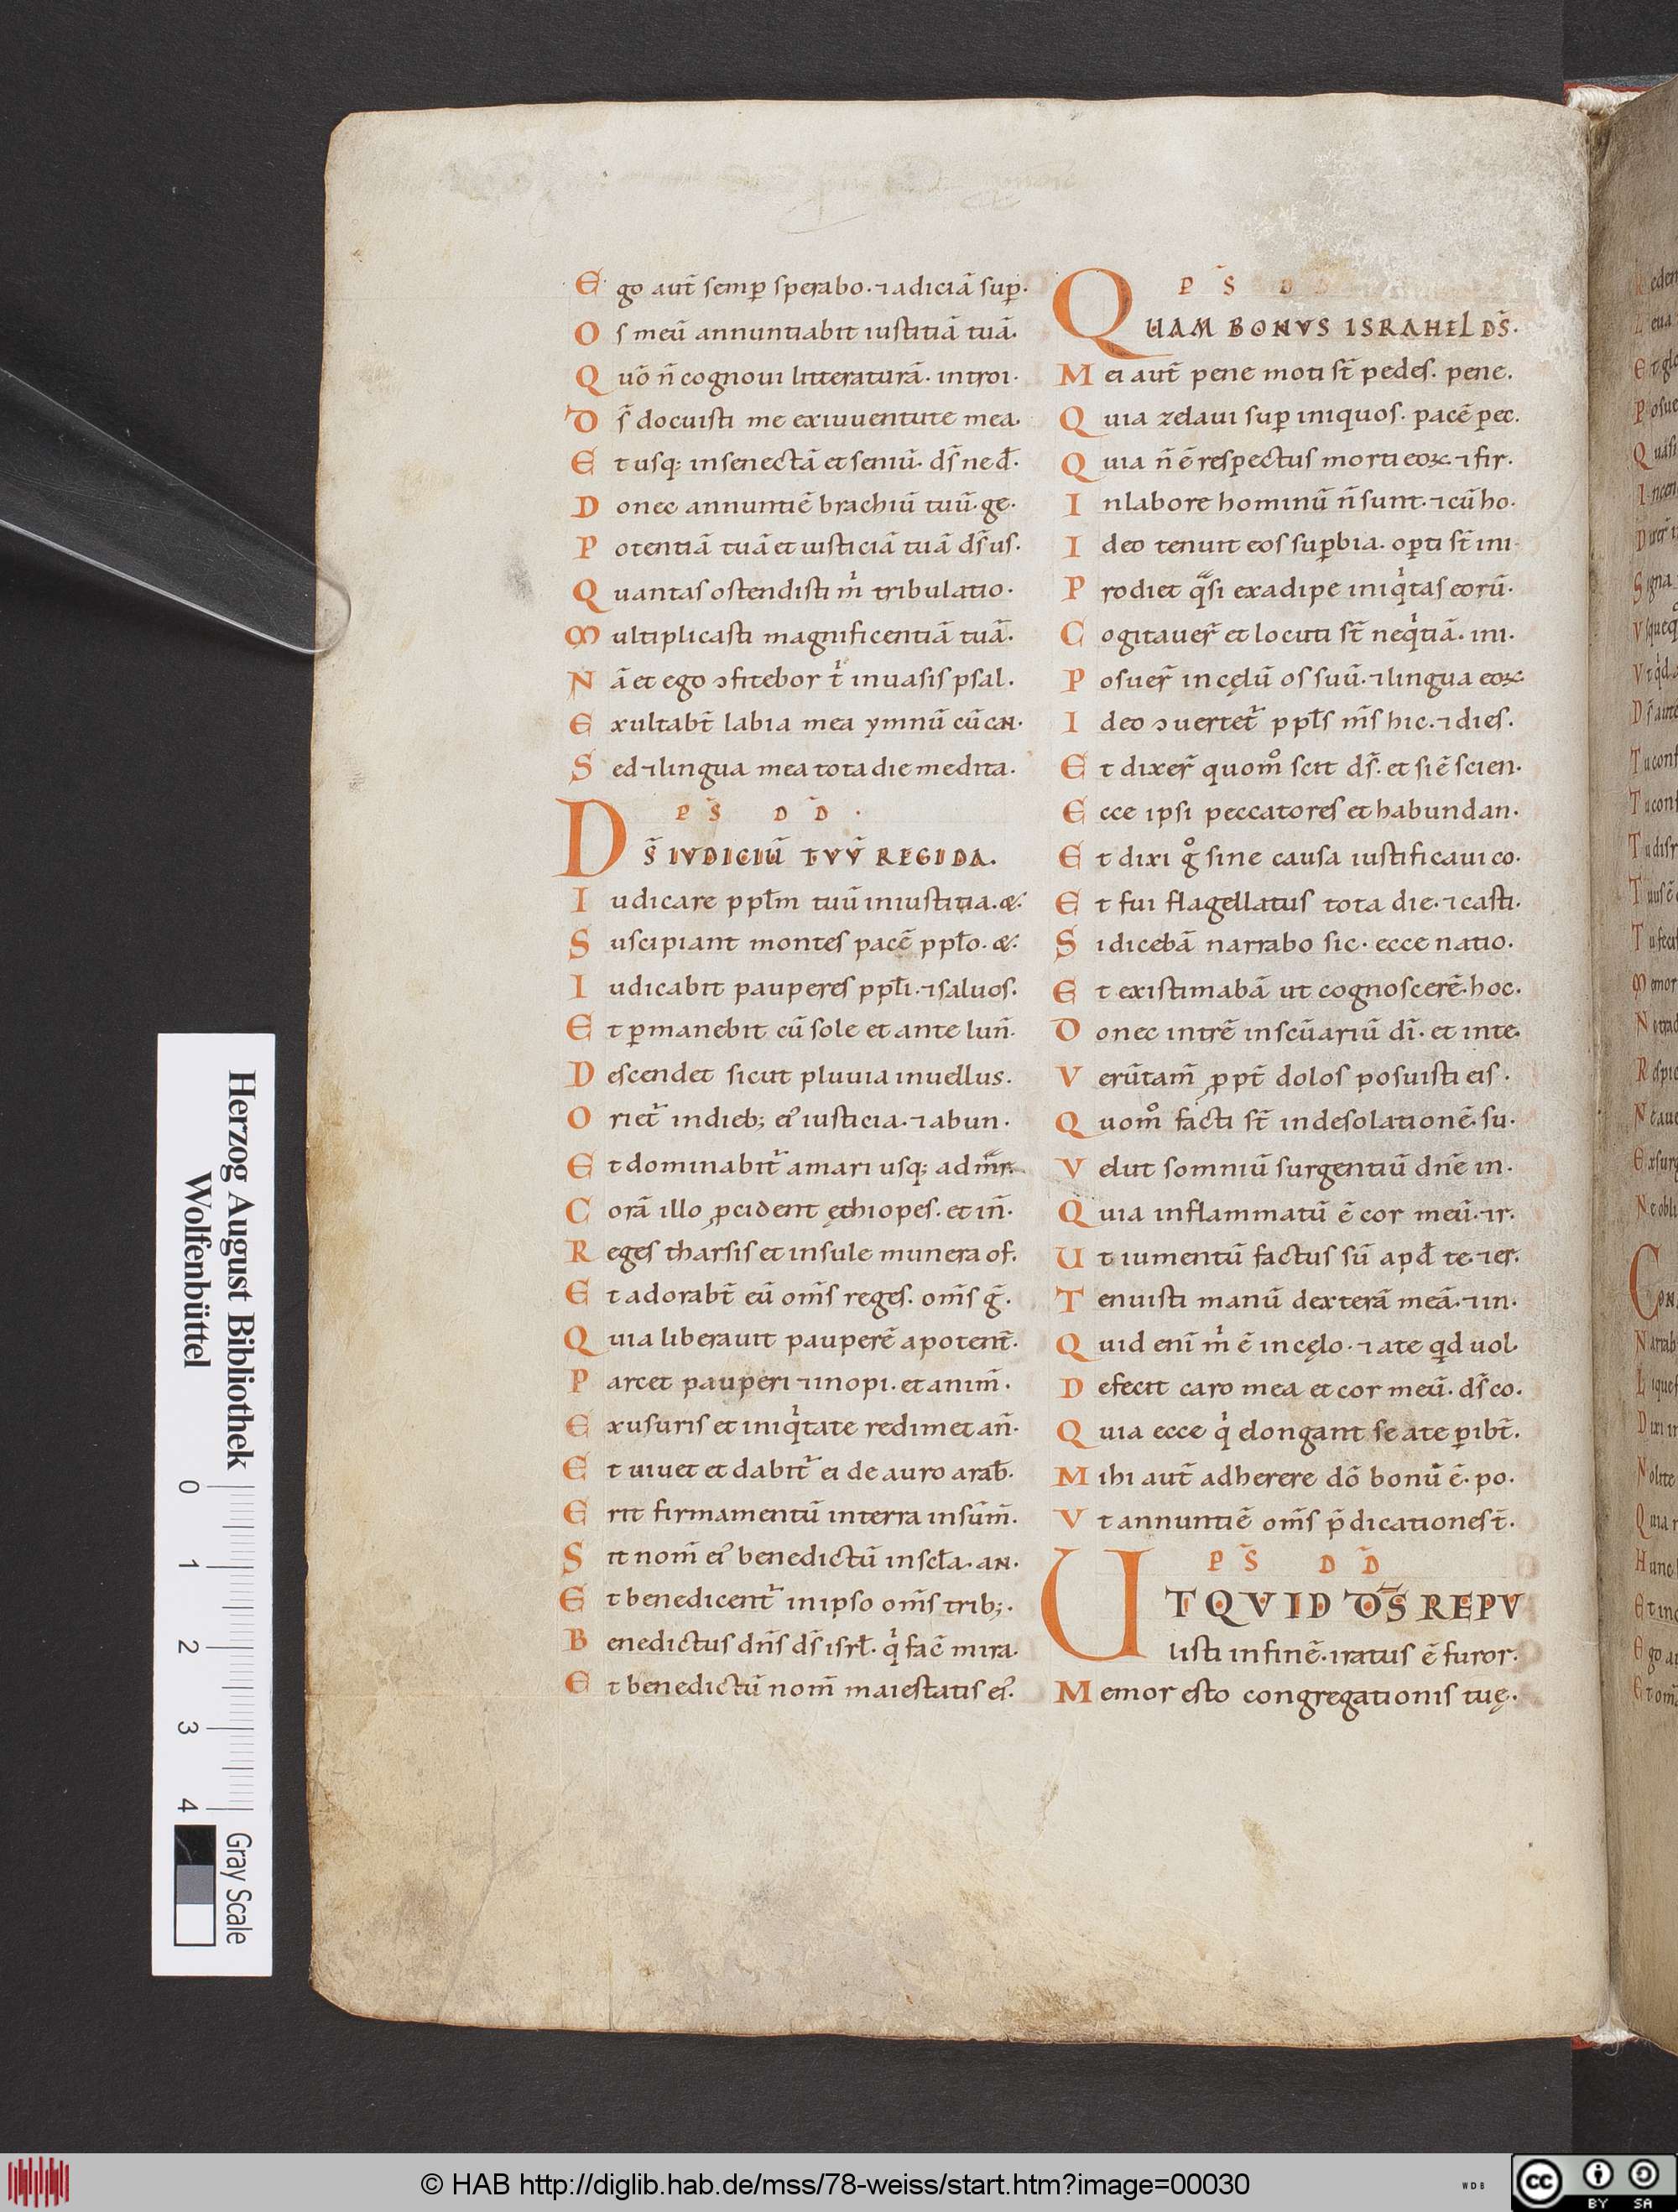 Ego aut̄ semꝑ sperabo·⁊adiciā suꝑ·
Os meū annuntiabit iustitiā tuā·
Quō n̄ cognoui litteraturā· introi·
Ds̄ docuisti me exiuuentute mea·
Et usq; insenectā et seniū· ds̄ ne d̄·
Donec annuntiē brachiū tuū· ge·
Potentiā tuā et iusticiā tuā ds̄ us·
Quantas ostendisti m̍ tribulatio·
Multiplicasti magnificentiā tuā·
Nā et ego ɔfitebor t̍ inuasis psal·
Exultabt̄ labia mea ymnū cū can·
Sed ⁊lingua mea tota die medita·
P S̄ D D̄ ·
DS̄ IVDICIŪ TVV̄ REGI DA·
Iudicare ppłm tuū iniustitia· &·
Suscipiant montes pacē ppło· &·
Iudicabit pauperes ppłi·⁊saluos·
Et ꝑmanebit cū sole et ante lun̄·
Descendet sicut pluuia inuellus·
Oriet᷑ indieb; ei᾽ iusticia·⁊abun·
Et dominabit᷑ amari usq; ad mr̄·
Corā illo ꝓcident ęthiopes· et in̄·
Reges tharsis et insule munera of·
Et adorabt̄ eū om̄s reges· om̄s ḡ·
Quia liberauit pauperē apotent̄·
Parcet pauperi ⁊inopi· et anim̄·
Exusuris et iniq̍tate redimet an̄·
Et uiuet et dabit᷑ ei de auro arab̄·
Erit firmamentū interra insūm̄·
Sit nom̄ ei᾽ benedictū inscła· an·
Et benedicent᷑ inipso om̄s trib;·
Benedictus dn̄s ds̄ isrł· q̍ facē mira·
Et benedictū nom̄ maiestatis ei᾽·
P S̄ D D
QUAM BONVS ISRAHEL DS̄·
Mei aut̄ pene moti st̄ pedes· pene·
Quia zelaui suꝑ iniquos· pacē pec·
Quia n̄ ē respectus morti eoꝝ·⁊fir·
Inlabore hominū n̄ sunt·⁊cū ho·
Ideo tenuit eos suꝑbia· oꝑti st̄ ini·
Prodiet qͣsi exadipe iniq̍tas eorū·
Cogitauer̄ et locuti st̄ neq̍tiā· ini·
Posuer̄ incęlū os suū·⁊lingua eoꝝ
Ideo ɔuertet᷑ ppłs m̄s hic·⁊dies·
Et dixer̄ quom̊ scit ds̄· et si ē scien·
Ecce ipsi peccatores et habundan·
Et dixi g̊ sine causa iustificaui co·
Et fui flagellatus tota die·⁊casti·
Si dicebā narrabo sic· ecce natio·
Et existimabā ut cognoscerē· hoc·
Donec intrē inscūariū dī· et inte·
Verūtam̄ ꝓpt̄ dolos posuisti eis·
Quom̊ facti st̄ indesolationē· su·
Velut somniū surgentiū dn̄e in·
Quia inflammatū ē cor meū·⁊r·
Ut iumentū factus sū apd̄ te·⁊er·
Tenuisti manū dexterā meā·⁊in·
Quid eni̅ m̍ ē incęlo·⁊ate qd uol·
Defecit caro mea et cor meū· ds̄ co·
Quia ecce q̍ elongant se ate ꝑibt̄·
Mihi aut̄ adherere dō bonū ē· po·
Vt annuntiē om̄s p̄dicationes t̄·
P S̄ D D̄
UT QVID DS̄ REPV
listi infinē· iratus ē furor·
Memor esto congregationis tuę·
Herzog August Bibliothek
Wolfenbüttel
0 1 2 3 4
Gray Scale
© HAB http://diglib.hab.de/mss/78-weiss/start.htm?image=00030
WDB
cc BY SA